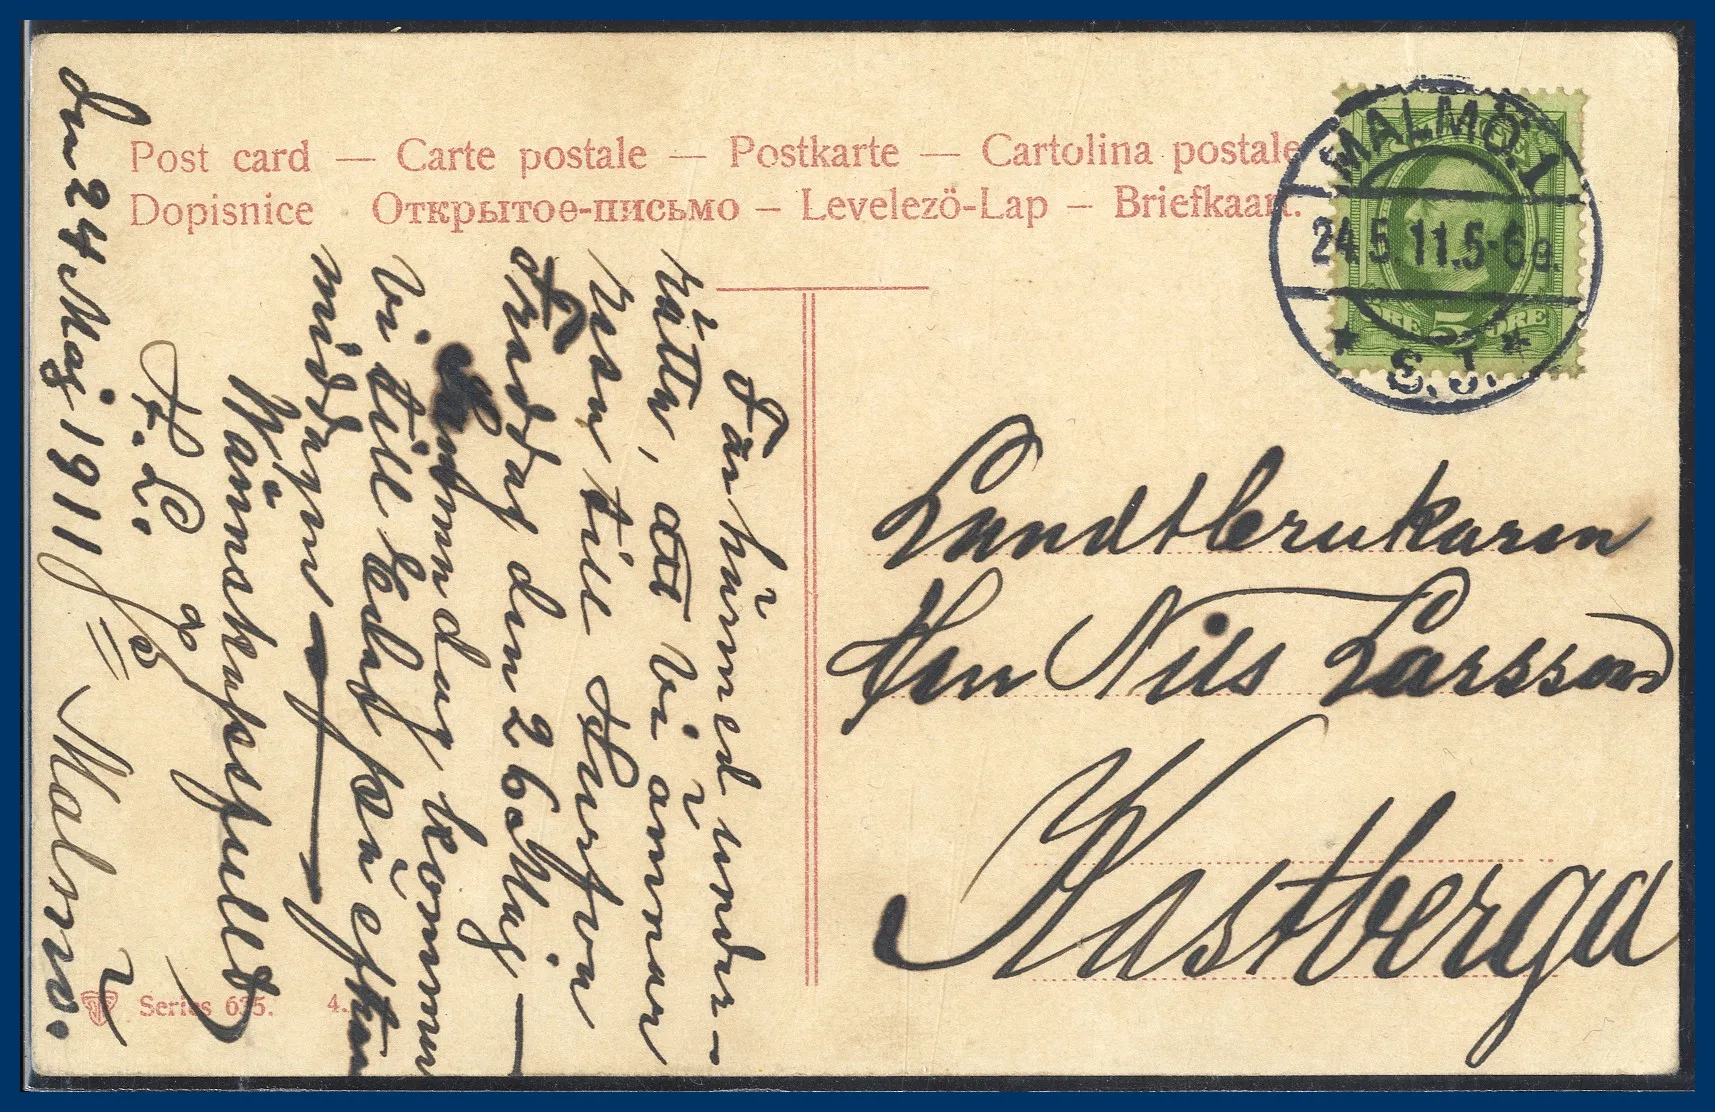 Post card — Carte postale — Postkarte — Cartolina postale
Dopisnice Открытое-письмо – Levelezö-Lap – Briefkaart.
MALMÖ.1
24.5.11.5-6e.
* S.J. *
5
ÖRE ÖRE
Landtbrukaren
Herr Nils Larsson
Kastberga
Får härmed under-
rätta, att vi ämnar
resa till Hurfva
Fredag den 26 Maj —
Lörendag kommer
vi till Eder på efter
middagen
Wänskapsfullt
F. L.
Den 24 Maj 1911 = Malmö.
Series 635. 4.